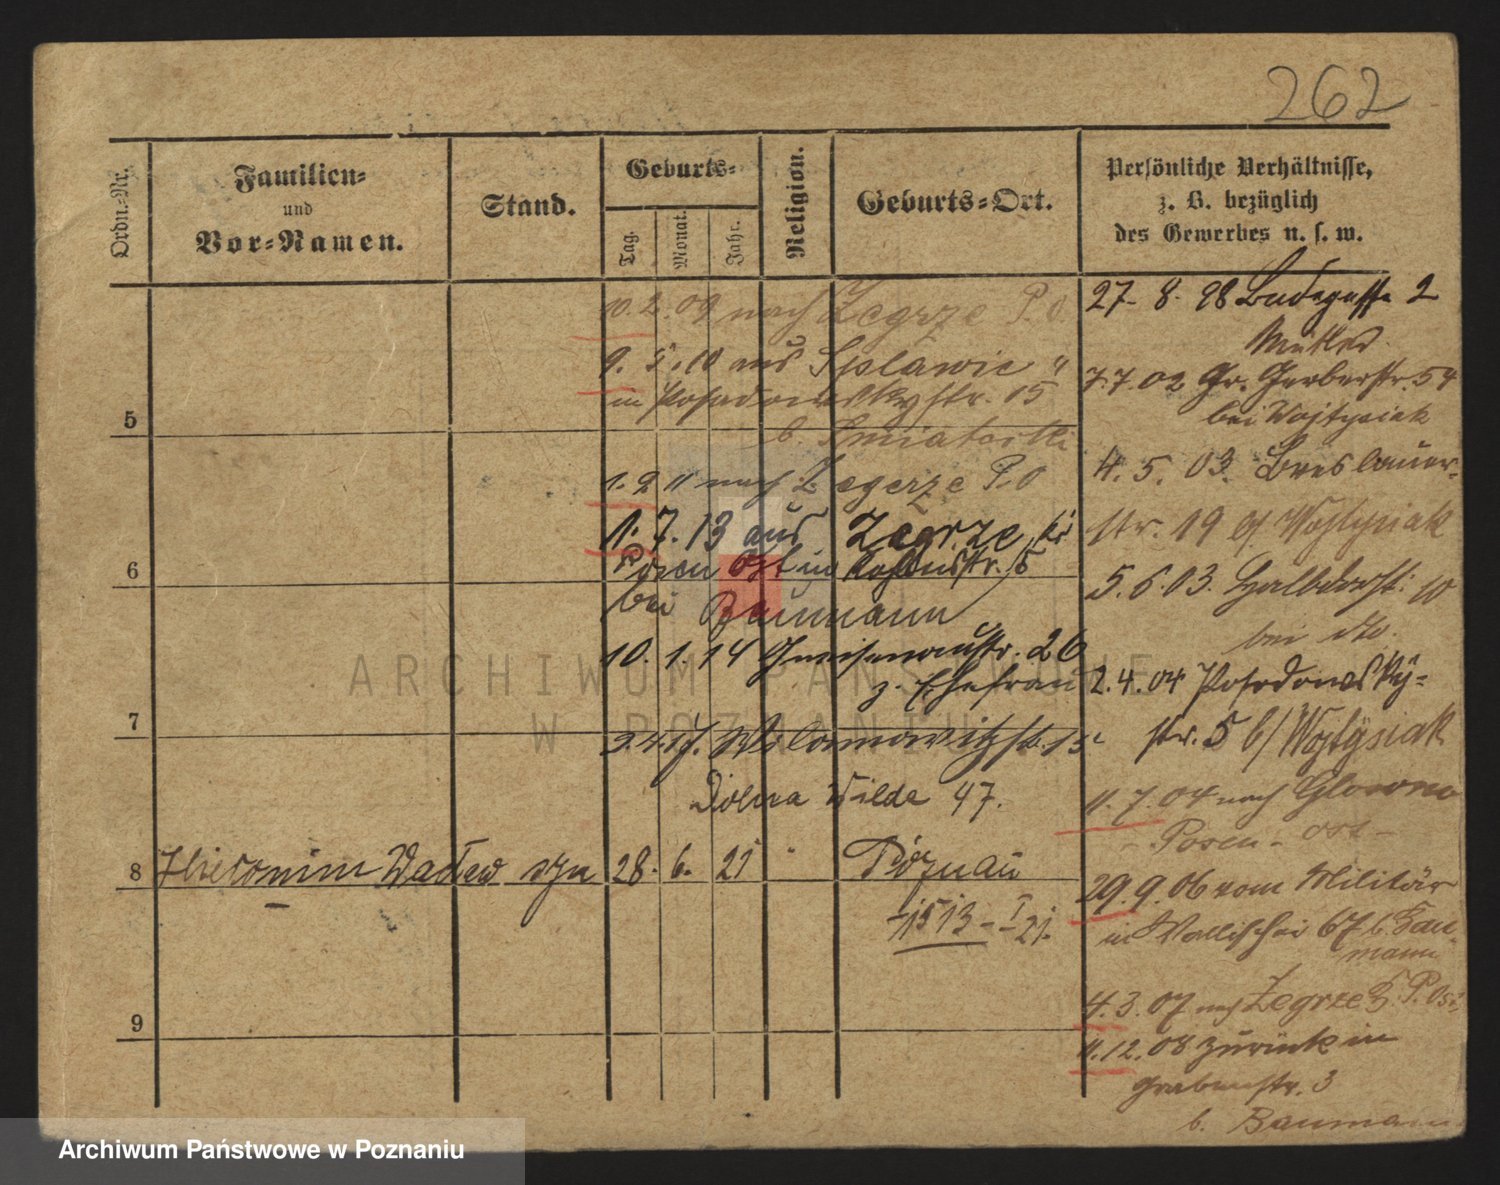 262
Ordn.-Nr.
Familien-
und
Vor-Namen.
Stand.
Geburts-
Tag.
Monat.
Jahr.
Religion.
Geburts-Ort.
Persönliche Verhältnisse,
z. B. bezüglich
des Gewerbes u. s. w.
10. 2. 09 nach Zegrze P. O.
9. 5. 10 aus Splawie "
in Posadowskystr. 15
b.
1. 2 11 nach Zegrze P. O
1. 7. 13 aus Zegrze, Kr
Posen Ost in 5
bei Baumann
10. 1. 14 Gneisenaustr. 26
z. Ehefrau
3.4.17.
Dolna Wilda 47.
5
6
7
8 Hieronim Wacław syn 28. 6. 21 " Poznań
1513 - I 21.
9
27. 8. 98 2
Mutter.
7. 7. 02 Gr. Gerberstr. 54
bei Wojtysiak
4. 5. 03. Breslauer-
str. 19 b/ Wojtysiak
5. 6. 03. Halbdorfst. 10
bei dto.
2. 4. 04 Posadowsky-
str. 5 b/ Wojtysiak
11. 7. 04 nach Glowno
- Posen - Ost -
29. 9. 06 vom Militär
in Wallischei 67 b. Bau
mann
4. 3. 07 nach Zegrze P. Ost
11. 12. 08 zurück in
Grabenstr. 3
b. Baumann
ARCHIWUM PAŃSTWOWE
W POZNANIU
Archiwum Państwowe w Poznaniu